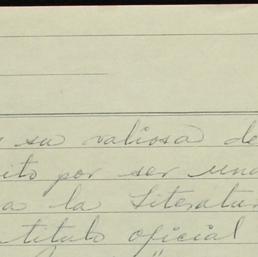 su valiosa de
ito por ser una
a la Literatur
titulo oficial